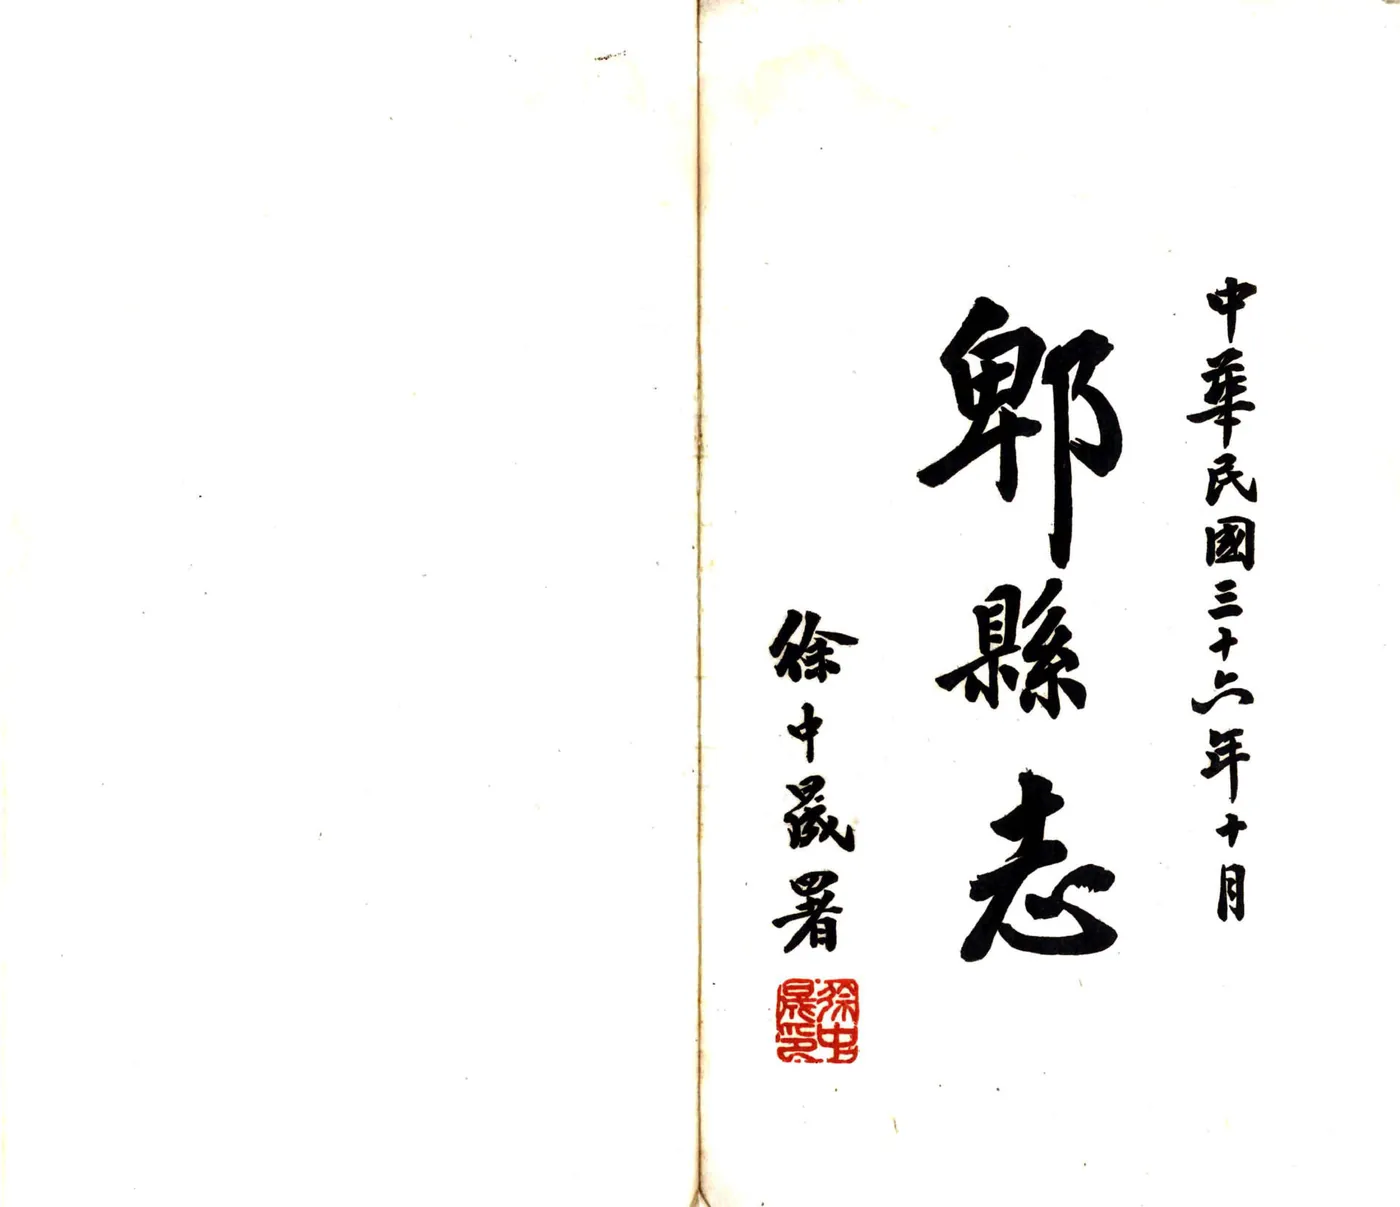 中華民國三十六年十月
郫縣志
徐中晟署
徐中晟印